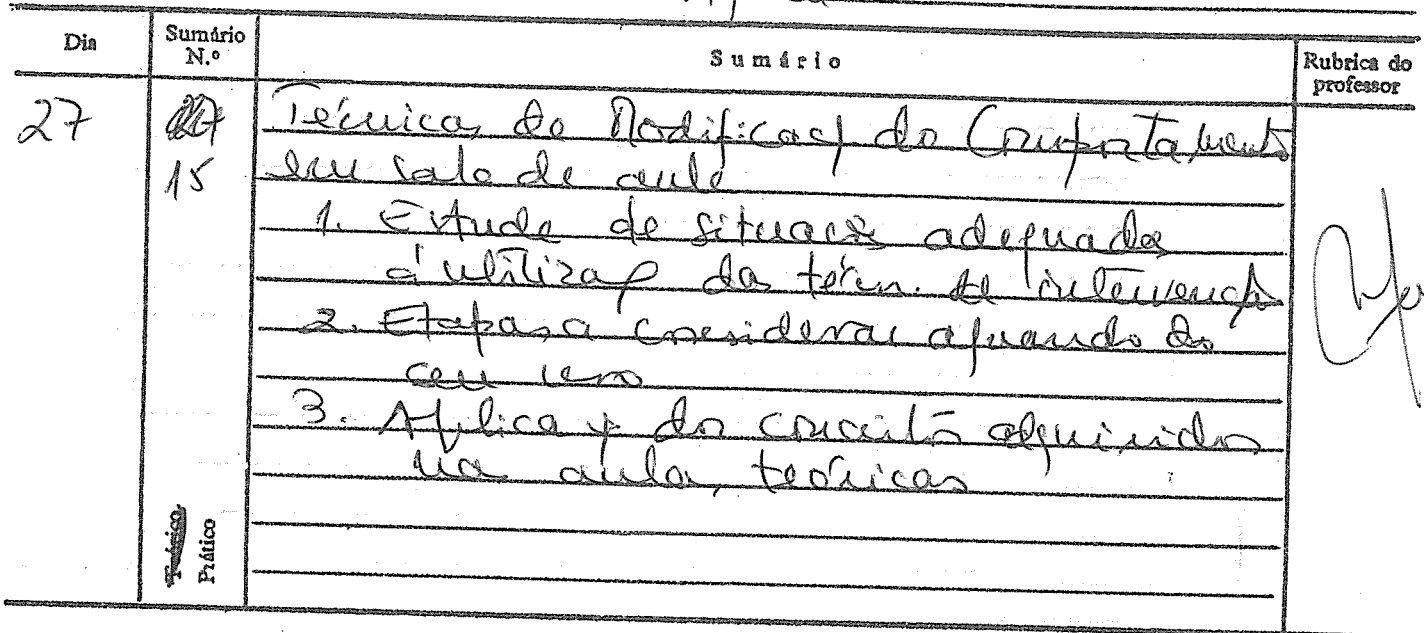 Dia Sumário N.º Sumário Rubrica do professor
27 15 Técnicas de Modificaç do Comportamento
em sala de aula
1. Estudo de situaçõs adequadas
á utilizaç das técn. de intervenç
2. Etapas a considerar aquando do
seu uso
3. Aplicaç dos conceitos adquiridos
nas aulas teóricas
Teórico
Prático